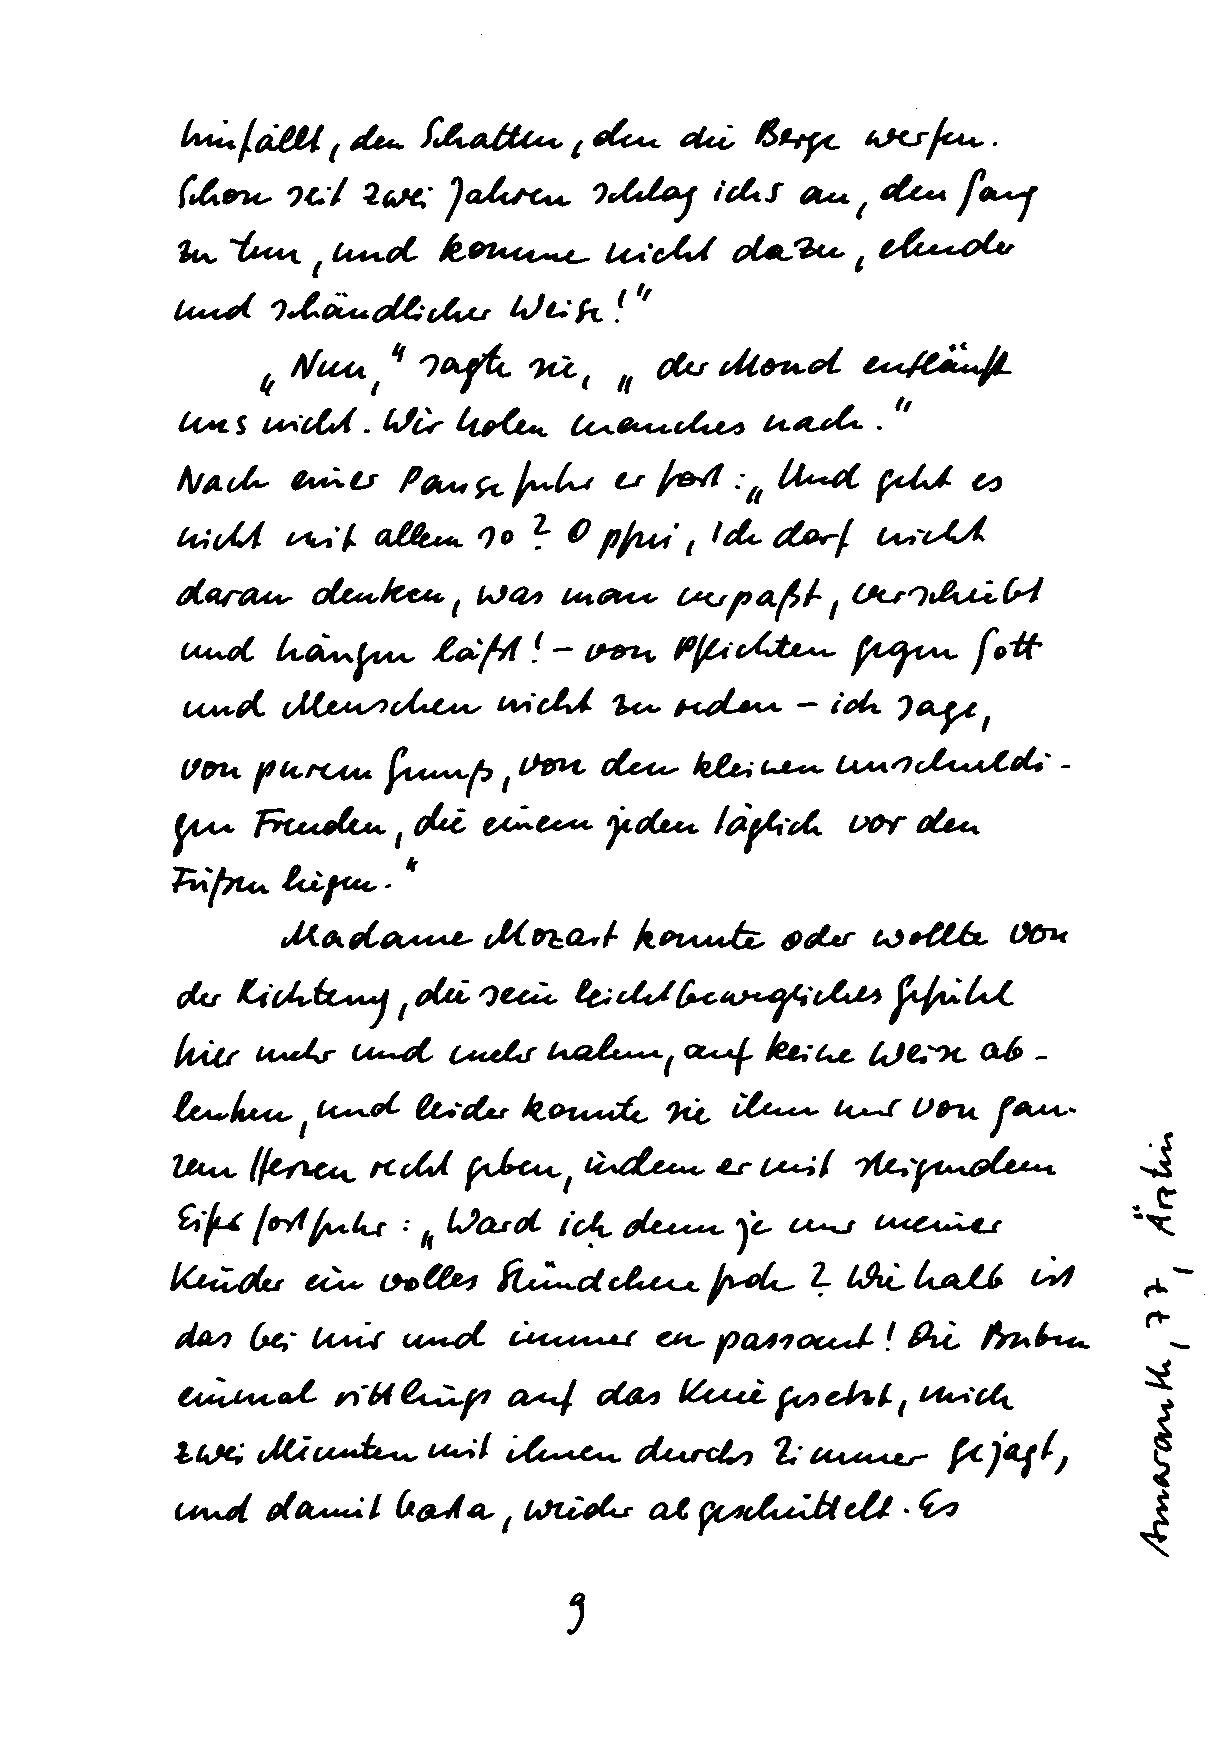 hinfällt, den Schatten, den die Berge werfen.
Schon seit zwei Jahren schlag ichs an, den Gang
zu tun, und komme nicht dazu, elender
und schändlicher Weise!"
„Nun," sagte sie, „der Mond entläuft
uns nicht. Wir holen manches nach."
Nach einer Pause fuhr er fort: „Und geht es
nicht mit allem so? O pfui, ich darf nicht
daran denken, was man verpaßt, verschiebt
und hängen läßt! – von Pflichten gegen Gott
und Menschen nicht zu reden – ich sage,
von purem Genuß, von den kleinen unschuldi-
gen Freuden, die einem jeden täglich vor den
Füßen liegen."
Madame Mozart konnte oder wollte von
der Richtung, die sein leichtbewegliches Gefühl
hier mehr und mehr nahm, auf keine Weise ab-
lenken, und leider konnte sie ihm nur von gan-
zem Herzen recht geben, indem er mit steigendem
Eifer fortfuhr: „Ward ich denn je nur meiner
Kinder ein volles Stündchen froh? Wie halb ist
das bei mir und immer en passant! Die Buben
einmal rittlings auf das Knie gesetzt, mich
zwei Minuten mit ihnen durchs Zimmer gejagt,
und damit basta, wieder abgeschüttelt. Es
9
Amaranth, 77, Ärztin